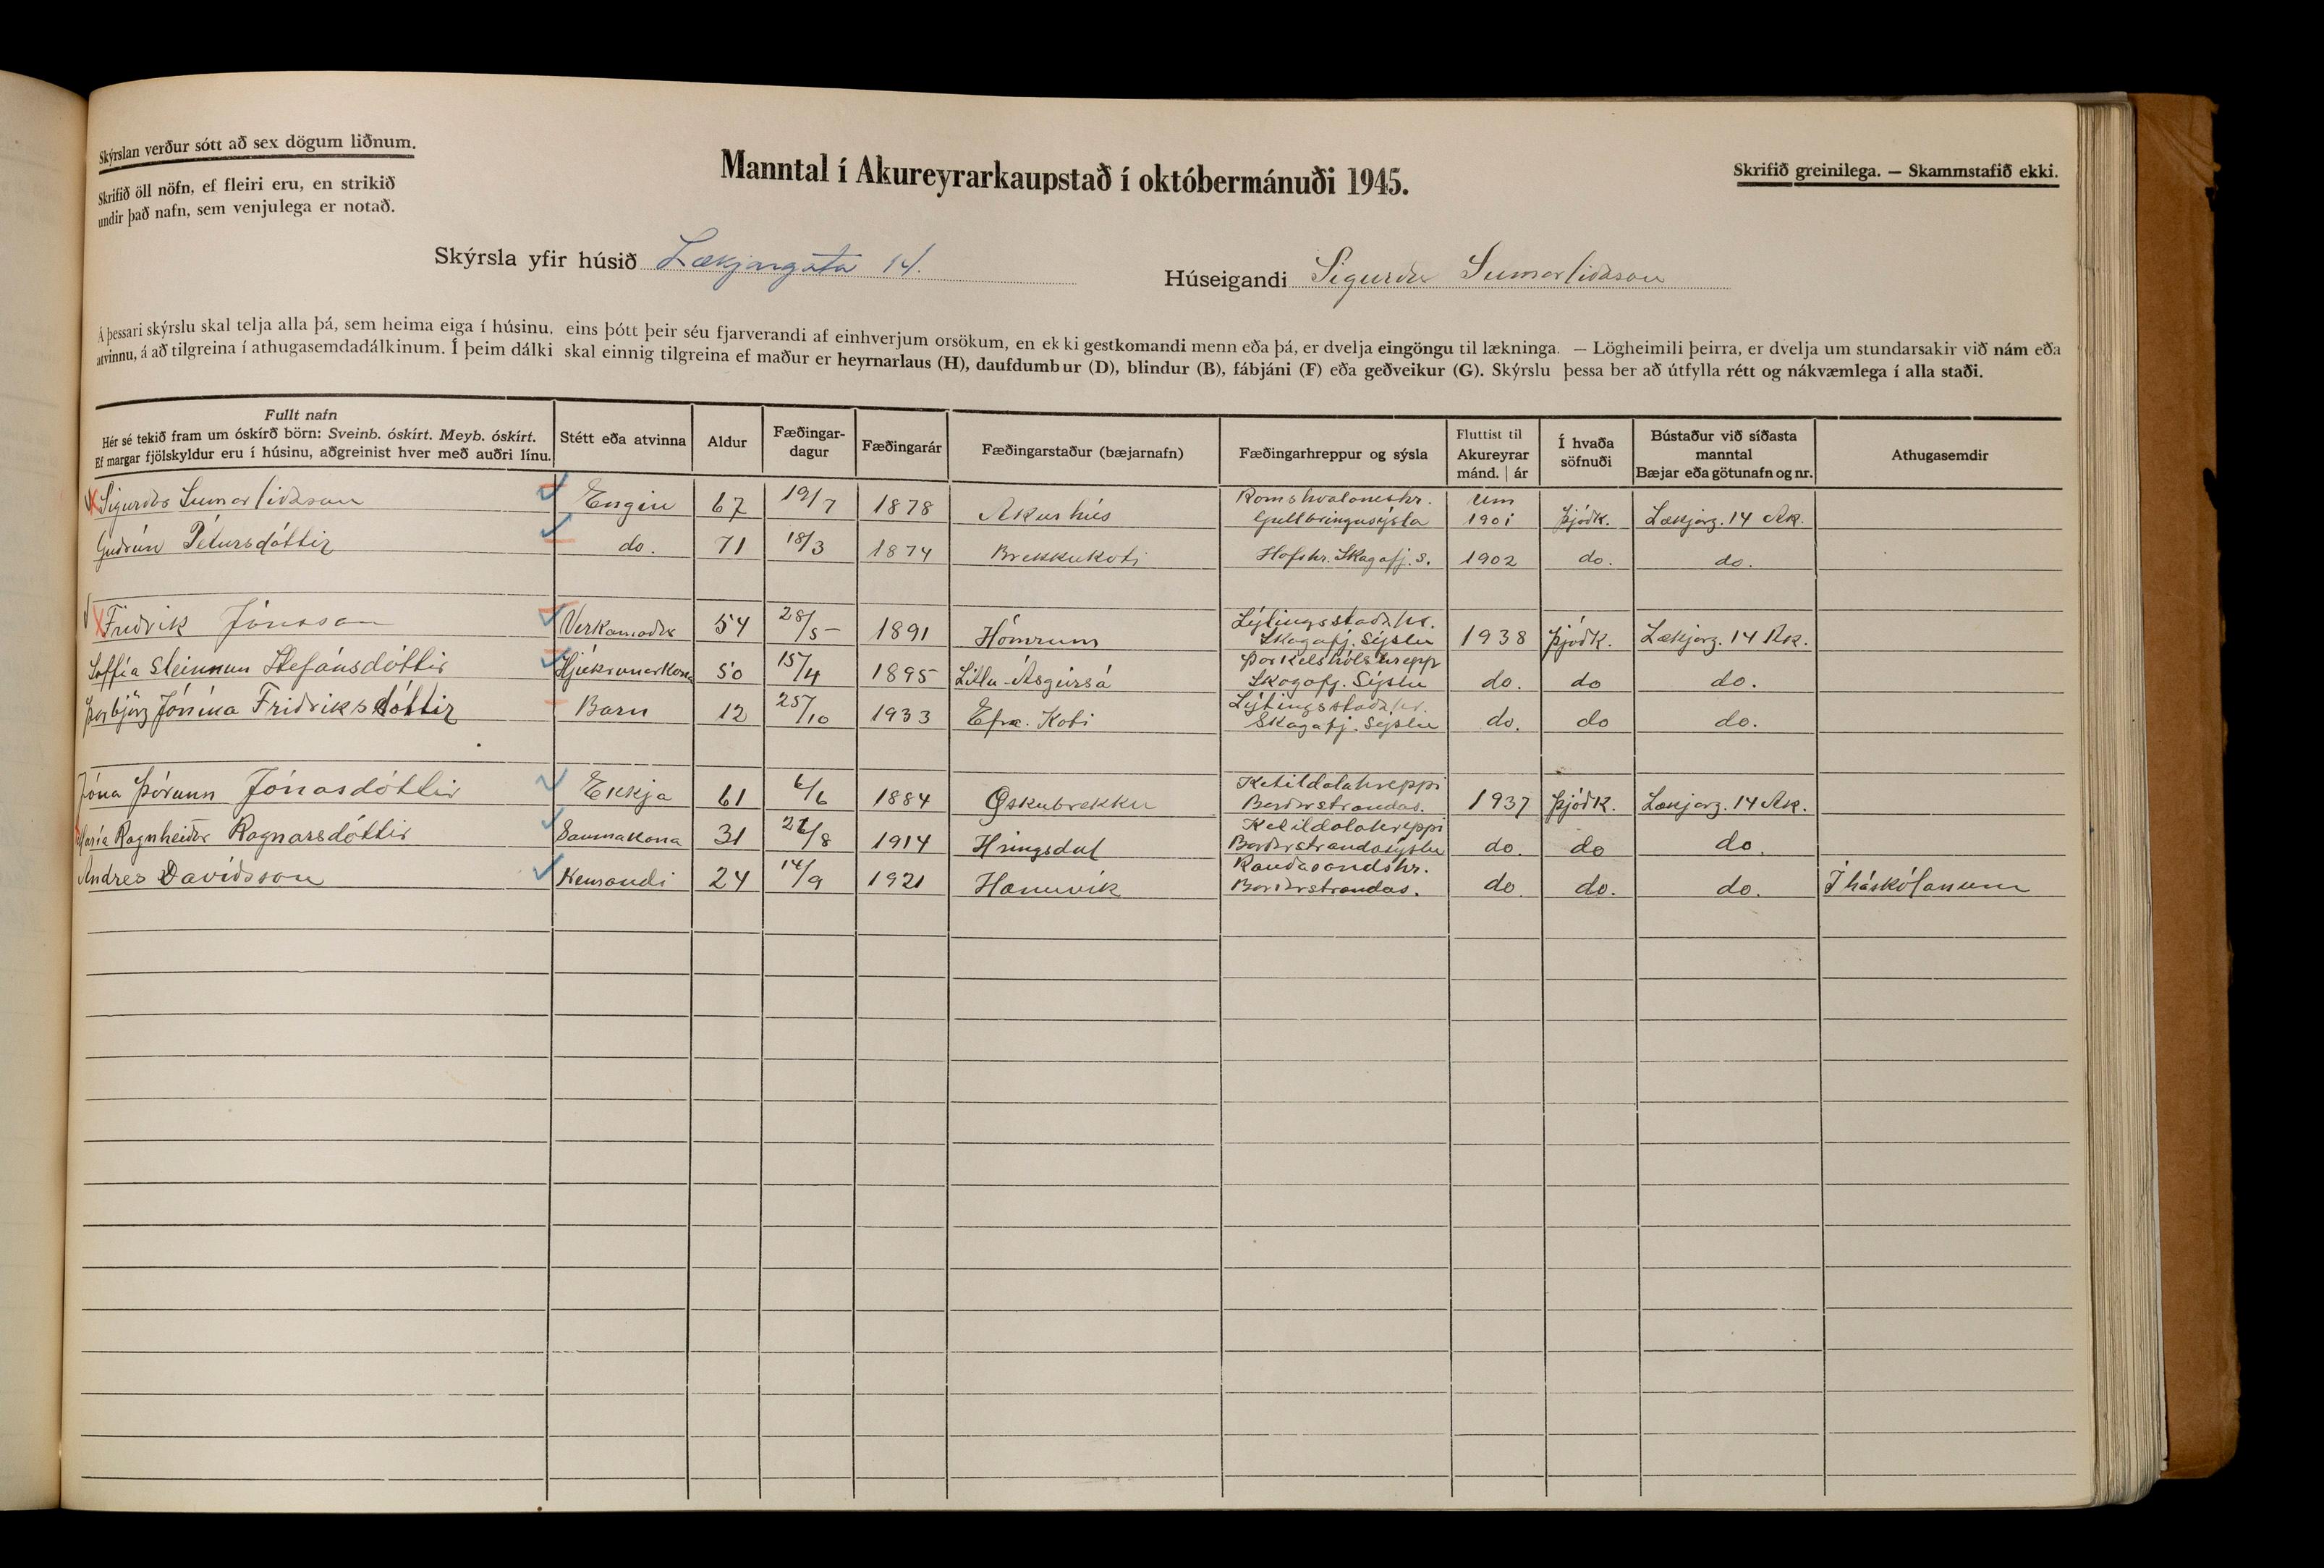 Skýrslan verður sótt að sex dögum liðnum.
Skrifið öll nöfn, ef fleiri eru, en strikið
undir það nafn, sem venjulega er notað.
Manntal í Akureyrarkaupstað í októbermánuði 1945.
Skrifið greinilega. — Skammstafið ekki.
Skýrsla yfir húsið Lækjargata 14.
Húseigandi Sigurður Sumarliðason
Á þessari skýrslu skal telja alla þá, sem heima eiga í húsinu, eins þótt þeir séu fjarverandi af einhverjum orsökum, en ekki gestkomandi menn eða þá, er dvelja eingöngu til lækninga. — Lögheimili þeirra, er dvelja um stundarsakir við nám eða
atvinnu, á að tilgreina í athugasemdadálkinum. Í þeim dálki skal einnig tilgreina ef maður er heyrnarlaus (H), daufdumbur (D), blindur (B), fábjáni (F) eða geðveikur (G). Skýrslu þessa ber að útfylla rétt og nákvæmlega í alla staði.
Fullt nafn
Hér sé tekið fram um óskírð börn: Sveinb. óskírt. Meyb. óskírt.
Ef margar fjölskyldur eru í húsinu, aðgreinist hver með auðri línu.
Stétt eða atvinna
Aldur
Fæðingar-
dagur
Fæðingarár
Fæðingarstaður (bæjarnafn)
Fæðingarhreppur og sýsla
Fluttist til
Akureyrar
mánd. | ár
Í hvaða
söfnuði
Bústaður við síðasta
manntal
Bæjar eða götunafn og nr.
Athugasemdir
Sigurður Sumarliðason Engin 67 19/7 1878 Akurhús Romshvalaneshr. Gullbringusýsla um 1901 Þjóðk. Lækjarg. 14 Ak.
Guðrún Pétursdóttir do. 71 18/3 1874 Brekkukoti Hofshr. Skagafj. s. 1902 do. do.
Friðrik Jónsson Verkamaður 54 28/5 1891 Hömrum Lýtingsstaðahr. Skagafj. Sýslu 1938 Þjóðk. Lækjarg. 14 Ak.
Soffía Steinunn Stefánsdóttir Hjúkrunarkona 50 15/4 1895 Litlu-Ásgeirsá Þorkelshólshrepp Skagafj. Sýslu do. do do.
Þorbjörg Jónína Friðriksdóttir Barn 12 25/10 1933 Efra-Koti Lýtingsstaðahr. Skagafj. Sýslu do. do do.
Jóna Þórunn Jónasdóttir Ekkja 61 6/6 1884 Öskubrekku Ketildalahreppi Barðastrandas. 1937 Þjóðk. Lækjarg. 14 Ak.
María Ragnheiður Ragnarsdóttir Saumakona 31 /8 1914 Hringsdal Ketildalahreppi Barðastrandasýslu do. do do.
Andres Davíðsson Kennari 24 14/9 1921 Hænuvík Rauðasandshr. Barðastrandas. do. do. do. Í háskólanum